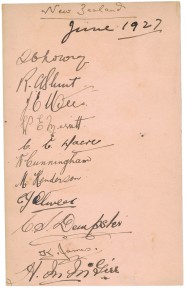 New Zealand
June 1927
Lowry
R C Blunt
J E Mills
W E Merritt
C C Dacre
Cunningham
M Henderson
C J Oliver
C S Dempster
K James
H M McGirr